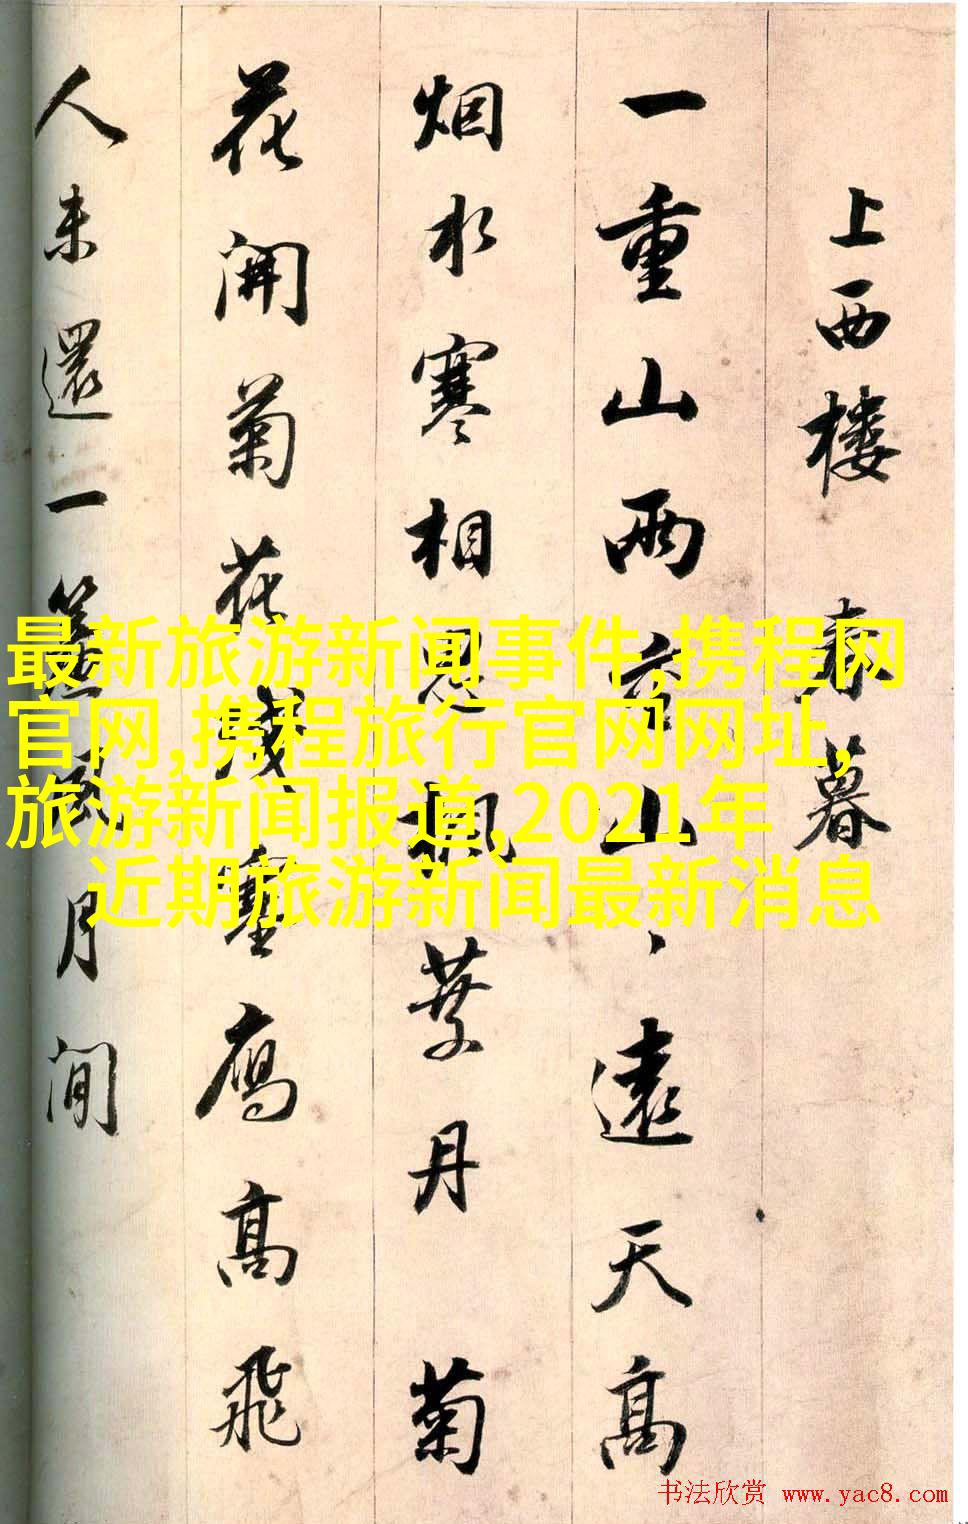 上西楼 暮
一重山兩重山、遠天高
烟水寒相思楓葉丹菊
花開菊花殘塞鴈高飛
人未還一簾風月閒
最新旅游新闻事件,携程网
官网,携程旅行官网网址,
旅游新闻报道,2021年
近期旅游新闻最新消息
书法欣赏 www.yac8.com